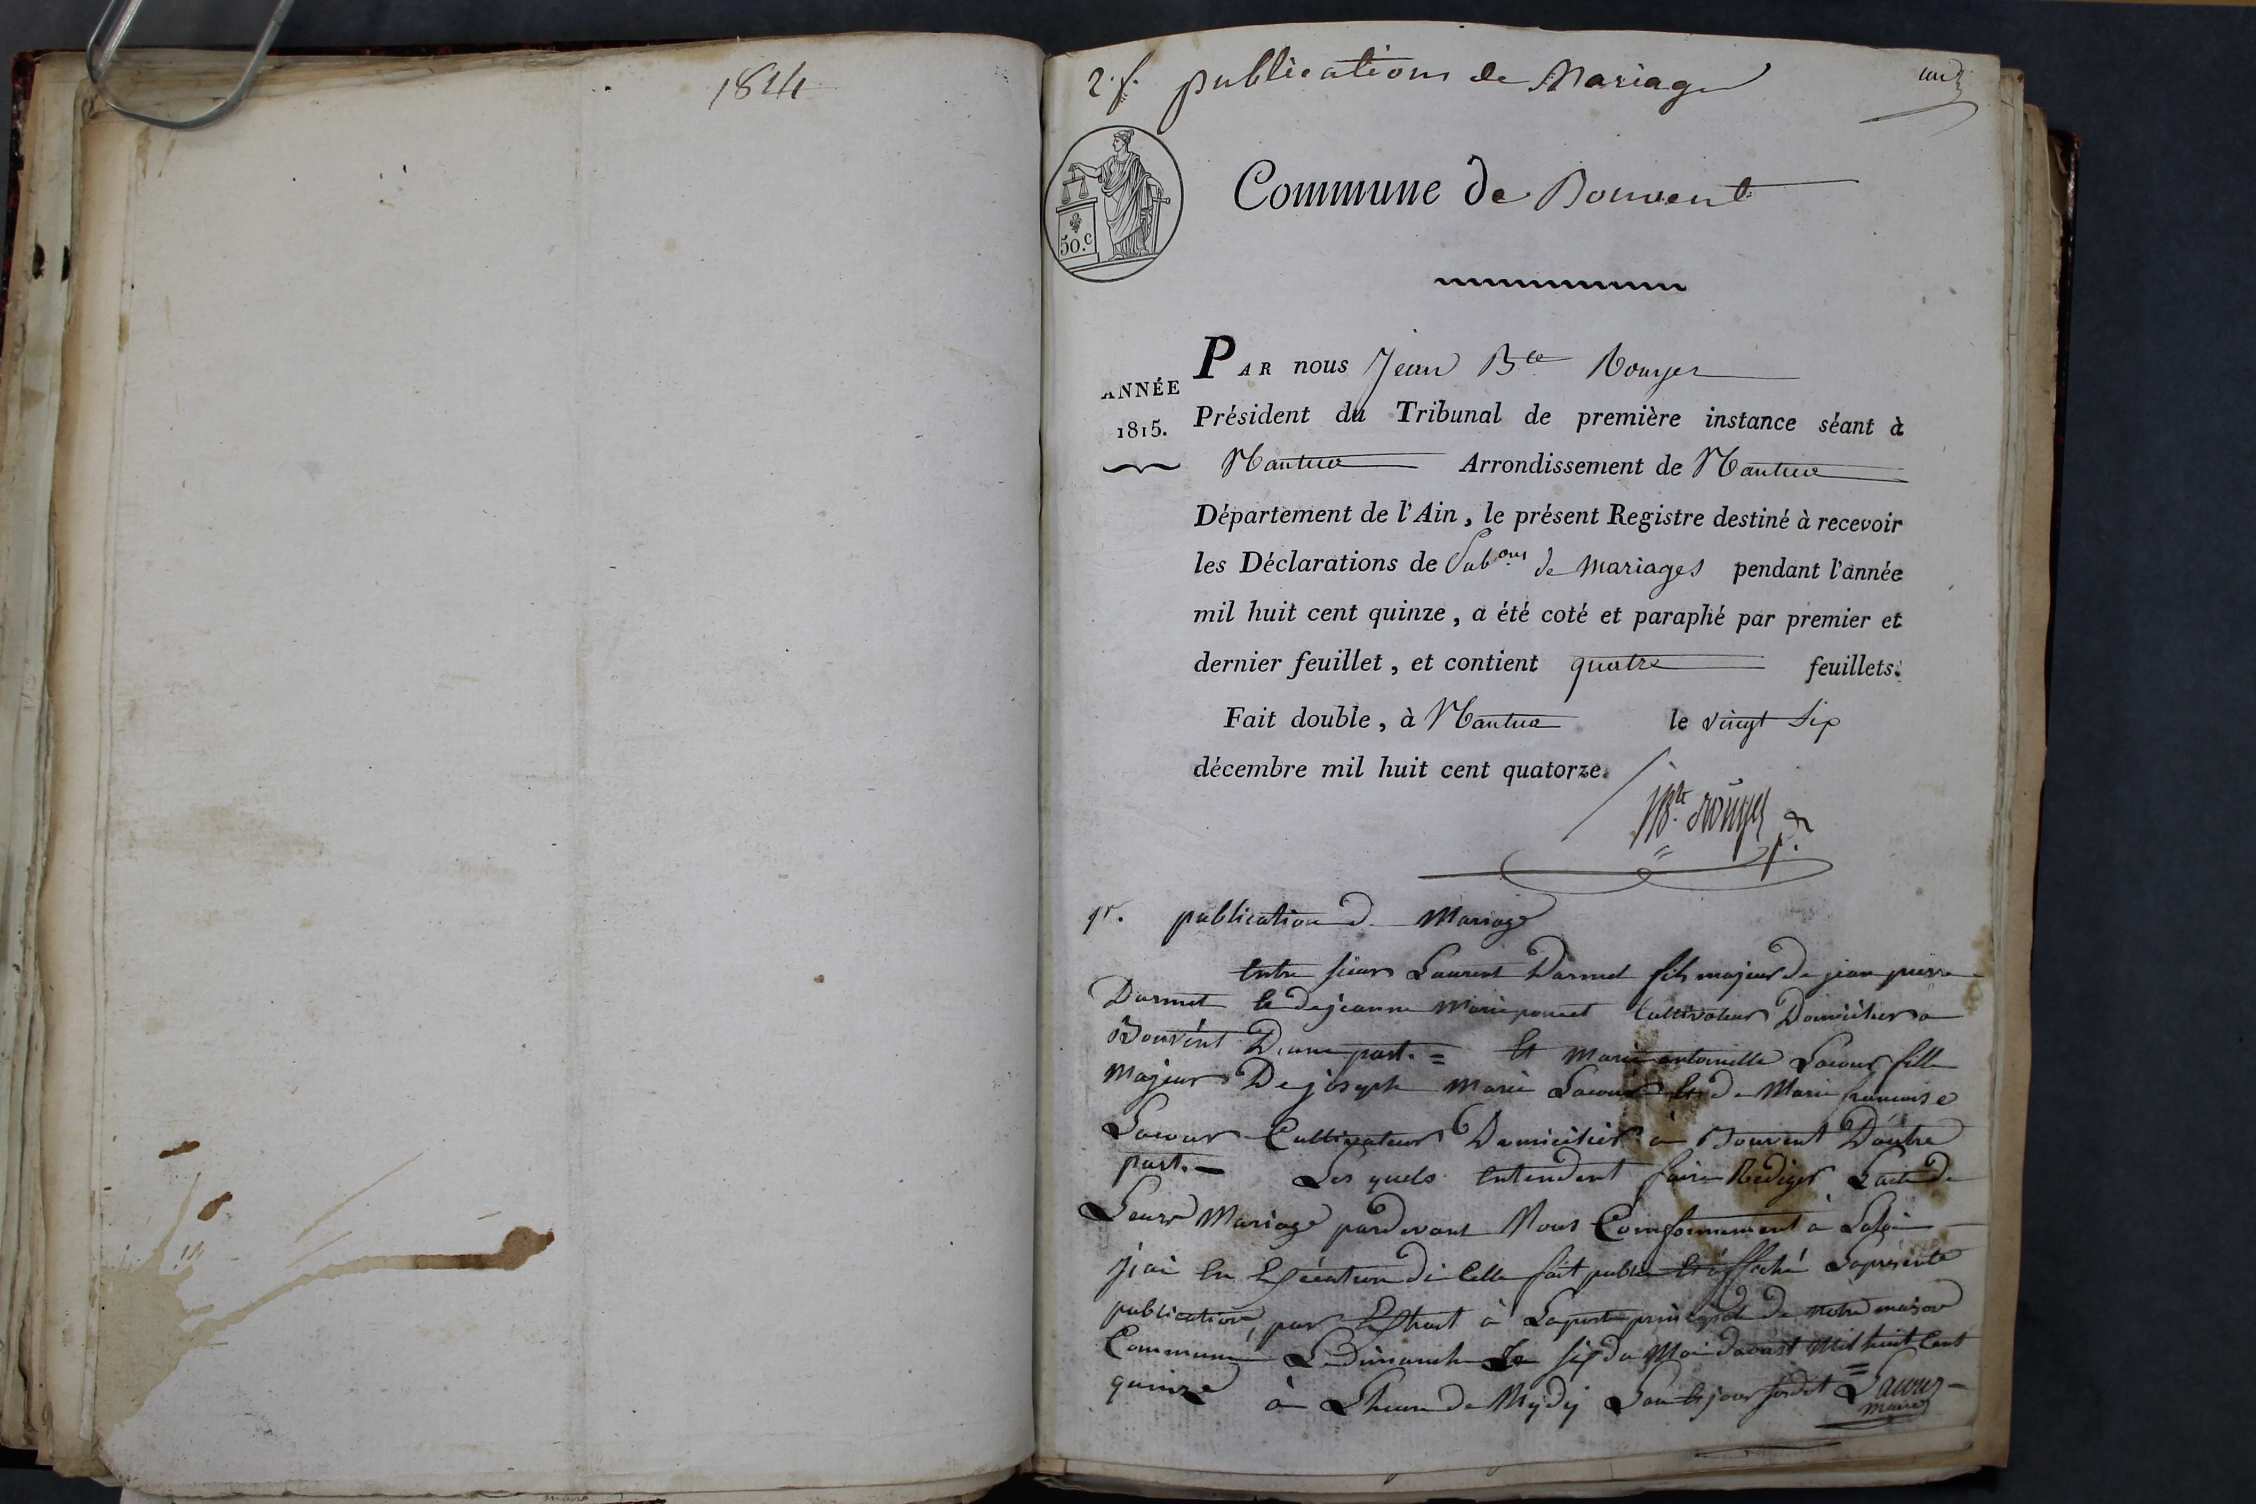 1814
2. f. publications de Mariage
un
50.c
Commune de Bouvent
ANNÉE
1815.
PAR nous Jean Bte Rouyer
Président du Tribunal de première instance séant à
Nantua Arrondissement de Nantua
Département de l'Ain, le présent Registre destiné à recevoir
les Déclarations de Pubons de mariages pendant l'année
mil huit cent quinze, a été coté et paraphé par premier et
dernier feuillet, et contient quatre feuillets.
Fait double, à Nantua le vingt Six
décembre mil huit cent quatorze.
JBte rouyer p.
1r. publication de Mariage
Entre sieur Laurent Darmet fils majeur de jean pierre
Darmet Et de jeanne Marie poncet Cultivateur Domicilier a
Bouvent D'une part. = Et Marie antoinette Lacour fille
Majeur De joseph Marie Lacour Et de Marie francoise
Lacour Cultivateur Domicilier à Bouvent D'autre
part. — Les quels Entendent faire Rediger L'acte de
Leur Mariage pardevant Nous Conformement à Laloi
j'ai En Exécution di Celle fait publier Et affiché Laprésente
publication, par Extrait à Laporte principale de notre maison
Commune Le dimanche Le six du Moi daoust Mil huit Cent
quinze à Lheure de Mydij Lan Et jour susdit = Lacour
maire